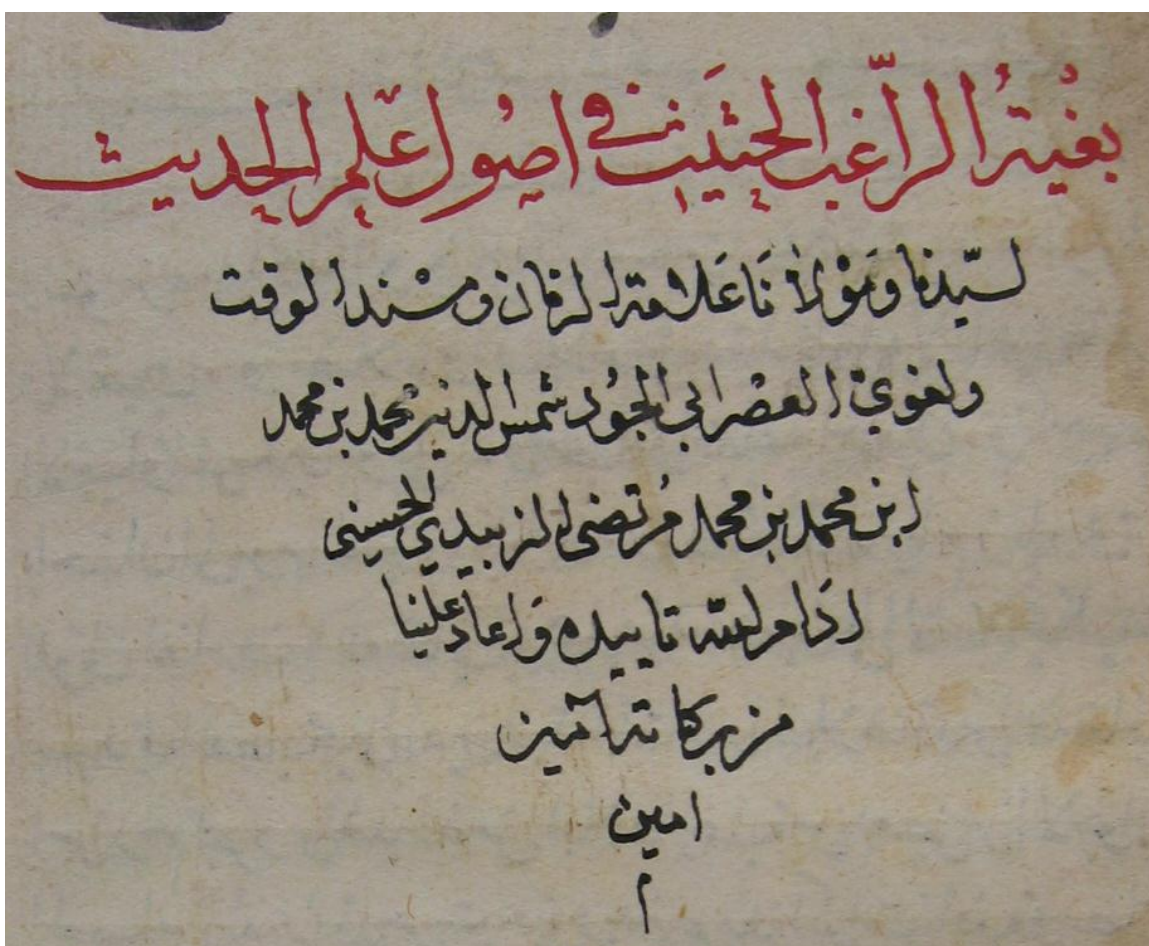 بغُيةُ الراغب الحثيث في اصُول علم الحديث
لسيّدنا ومَوْلانَا عَلامة الزمان ومسْند الوقت
ولغويّ العصْر ابي الجُود شمس الدين محمد بن محمد
ابن محمد بن محمد مُرتضى الزبيدي الحسيني
ادَام الله تاييده وَاعاد علينا
من بركاته آمين
امين
م